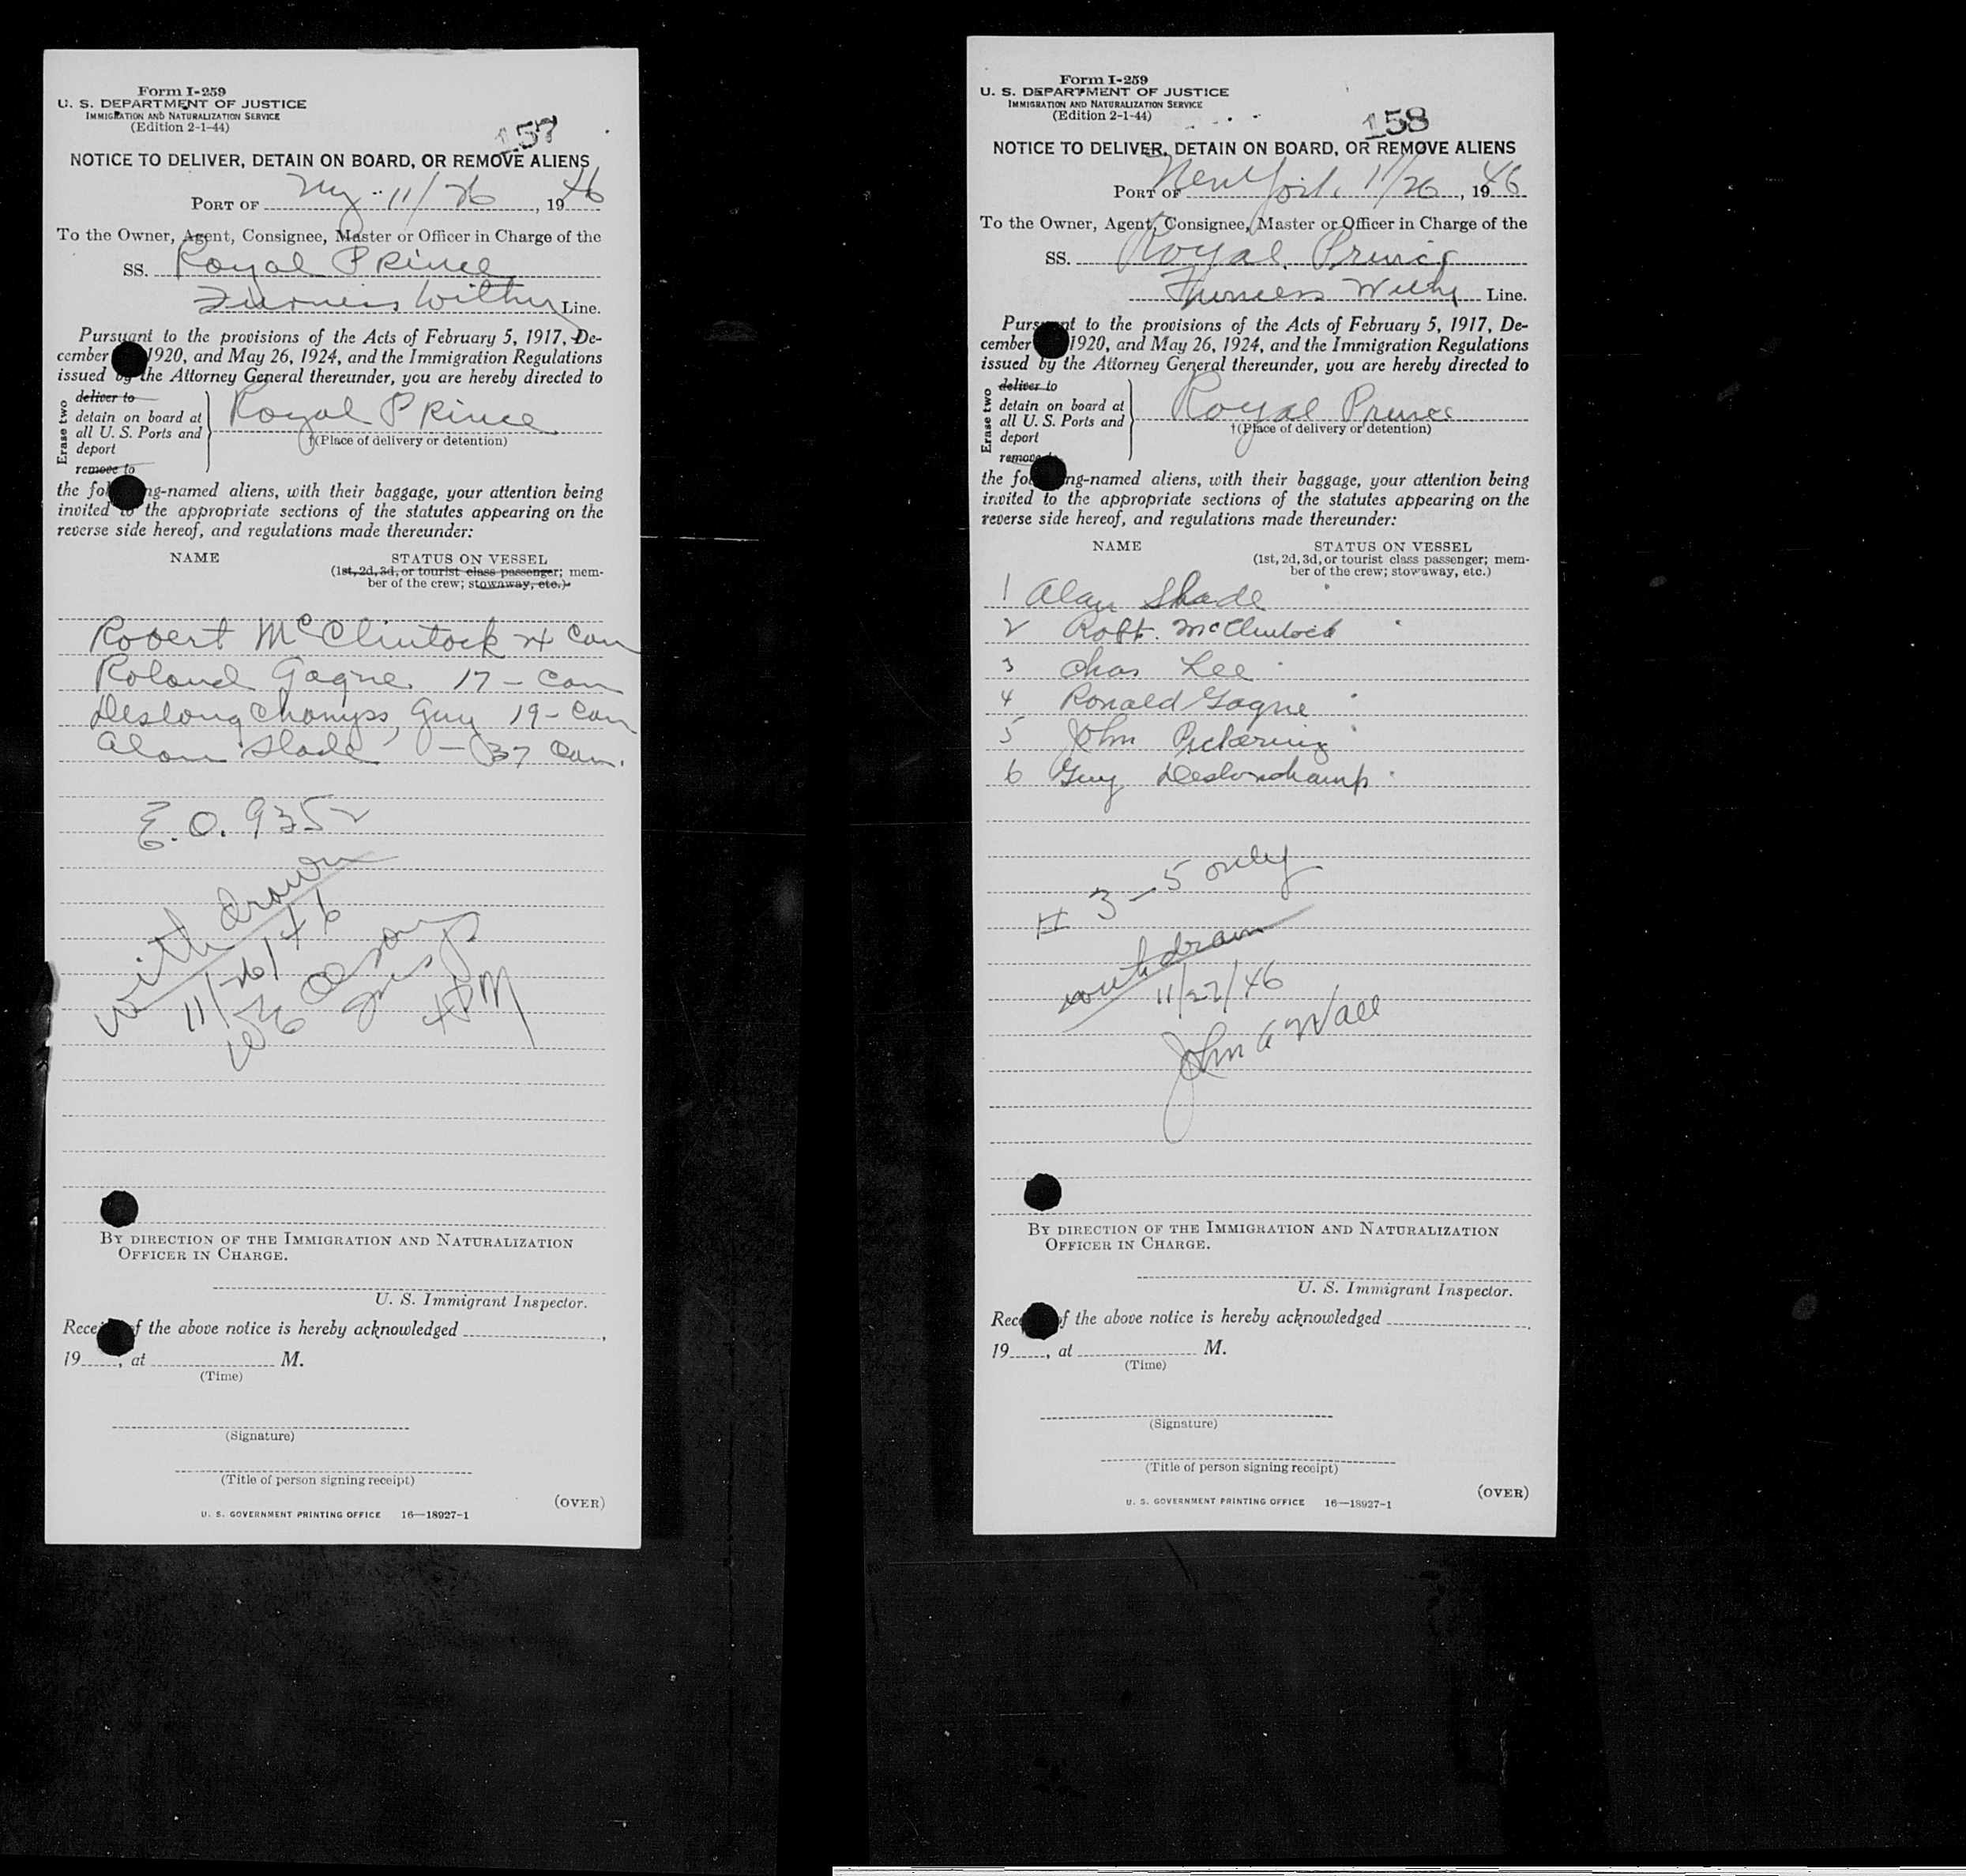 Form I-259
U. S. DEPARTMENT OF JUSTICE
IMMIGRATION AND NATURALIZATION SERVICE
(Edition 2-1-44)
157
NOTICE TO DELIVER, DETAIN ON BOARD, OR REMOVE ALIENS
PORT OF Ny 11/26, 1946
To the Owner, Agent, Consignee, Master or Officer in Charge of the
SS. Royal Prince
Furness Withy Line.
Pursuant to the provisions of the Acts of February 5, 1917, De-
cember 1920, and May 26, 1924, and the Immigration Regulations
issued by the Attorney General thereunder, you are hereby directed to
Erase two
deliver to
detain on board at
all U. S. Ports and
deport
remove to
Royal Prince
†(Place of delivery or detention)
the fol ng-named aliens, with their baggage, your attention being
invited to the appropriate sections of the statutes appearing on the
reverse side hereof, and regulations made thereunder:
NAME STATUS ON VESSEL
(1st, 2d, 3d, or tourist class passenger; mem-
ber of the crew; stowaway, etc.)
Robert McClintock 4 Can
Roland Gagne 17 - Can
Deslongchamps, Guy 19 - Can
Alan Slade - 37 Can.
E.O. 9352
withdrawn
11/26/46
BY DIRECTION OF THE IMMIGRATION AND NATURALIZATION
OFFICER IN CHARGE.
U. S. Immigrant Inspector.
Recei f the above notice is hereby acknowledged ,
19 , at M.
(Time)
(Signature)
(Title of person signing receipt)
(OVER)
U. S. GOVERNMENT PRINTING OFFICE 16—18927-1
Form I-259
U. S. DEPARTMENT OF JUSTICE
IMMIGRATION AND NATURALIZATION SERVICE
(Edition 2-1-44)
158
NOTICE TO DELIVER, DETAIN ON BOARD, OR REMOVE ALIENS
PORT OF New York 11/26, 1946
To the Owner, Agent, Consignee, Master or Officer in Charge of the
SS. Royal Prince
Furness Withy Line.
Pursuant to the provisions of the Acts of February 5, 1917, De-
cember 1920, and May 26, 1924, and the Immigration Regulations
issued by the Attorney General thereunder, you are hereby directed to
Erase two
deliver to
detain on board at
all U. S. Ports and
deport
remove to
Royal Prince
†(Place of delivery or detention)
the fol ng-named aliens, with their baggage, your attention being
invited to the appropriate sections of the statutes appearing on the
reverse side hereof, and regulations made thereunder:
NAME STATUS ON VESSEL
(1st, 2d, 3d, or tourist class passenger; mem-
ber of the crew; stowaway, etc.)
1 Alan Shade
2 Robt. McClintock
3 Chas Lee
4 Ronald Gagne
5 John Pickering
6 Guy Deslonchamp
# 3 - 5 only
withdrawn
11/27/46
John A Wall
BY DIRECTION OF THE IMMIGRATION AND NATURALIZATION
OFFICER IN CHARGE.
U. S. Immigrant Inspector.
Rec f the above notice is hereby acknowledged
19 , at M.
(Time)
(Signature)
(Title of person signing receipt)
(OVER)
U. S. GOVERNMENT PRINTING OFFICE 16—18927-1